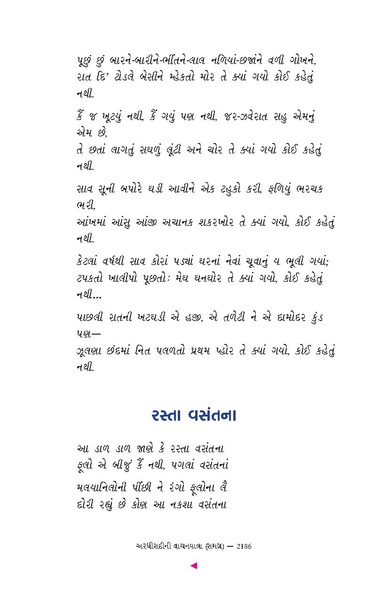 પૂછું છું બારને-બારીને-ભીંતને-લાલ નળિયાં-છજાંને વળી ગોખને,
રાત દિ' ટોડલે બેસીને મ્હેકતો મોર તે ક્યાં ગયો કોઈ કહેતું
નથી.
કૈં જ ખૂટયું નથી, કૈં ગયું પણ નથી, જર-ઝવેરાત સહુ એમનું
એમ છે,
તે છતાં લાગતું સઘળું લૂંટી અને ચોર તે ક્યાં ગયો કોઈ કહેતું
નથી.
સાવ સૂની બપોરે ઘડી આવીને એક ટહુકો કરી, ફળિયું ભરચક
ભરી,
આંખમાં આંસુ આંજી અચાનક શકરખોર તે ક્યાં ગયો, કોઈ કહેતું
નથી.
કેટલાં વર્ષથી સાવ કોરાં પડ્યાં ઘરનાં નેવાં ચૂવાનું ય ભૂલી ગયાં;
ટપકતો ખાલીપો પૂછતોઃ મેઘ ઘનઘોર તે ક્યાં ગયો, કોઈ કહેતું
નથી...
પાછલી રાતની ખટઘડી એ હજી, એ તળેટી ને એ દામોદર કુંડ
પણ—
ઝૂલણા છંદમાં નિત પલળતો પ્રથમ પ્હોર તે ક્યાં ગયો, કોઈ કહેતું
નથી.
રસ્તા વસંતના
આ ડાળ ડાળ જાણે કે રસ્તા વસંતના
ફૂલો એ બીજું કૈં નથી, પગલાં વસંતનાં
મલયાનિલોની પીંછી ને રંગો ફૂલોના લૈ
દોરી રહ્યું છે કોણ આ નકશા વસંતના
અરધીસદીની વાચનયાત્રા (સમગ્ર) — 2186